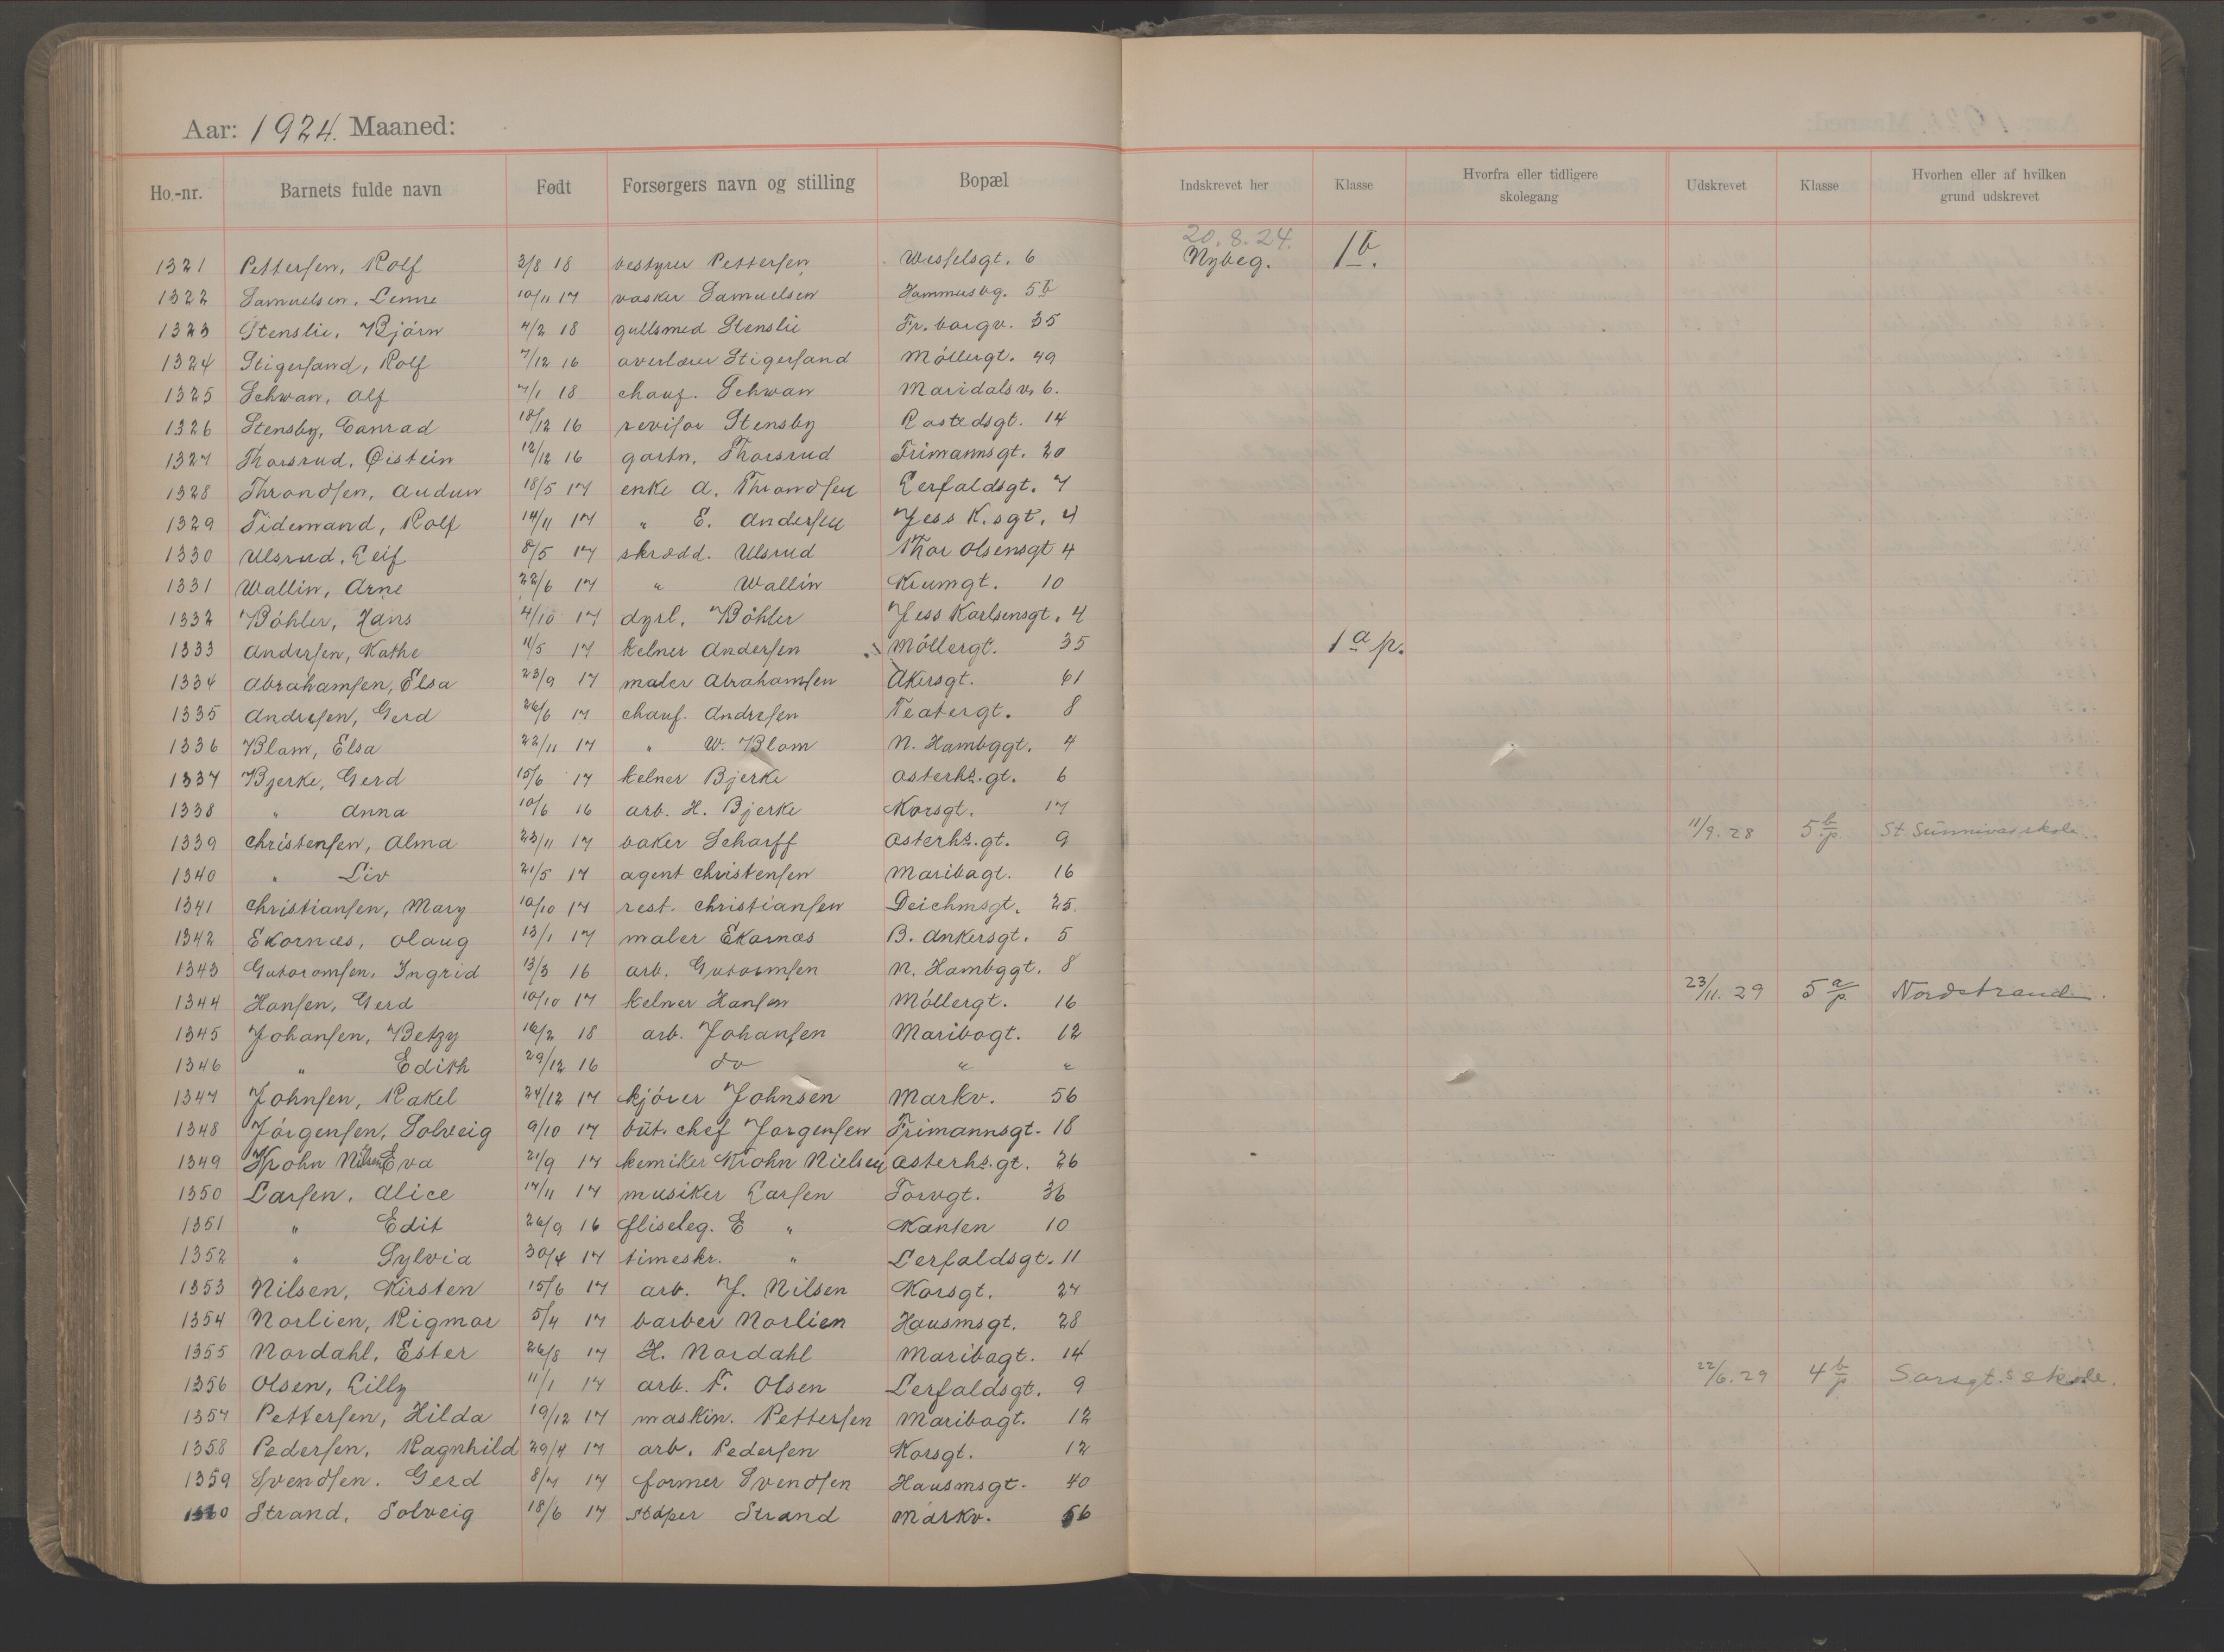 Aar: 1924. Maaned:
Ho.-nr. Barnets fulde navn Født Forsørgers navn og stilling Bopæl Indskrevet her Klasse Hvorfra eller tidligere skolegang Udskrevet Klasse Hvorhen eller af hvilken grund udskrevet
20.8.24.
1321 Pettersen, Rolf 3/8 18 bestyrer Pettersen Wesselsgt. 6 Nybeg. 1b.
1322 Samuelsen, 10/11 17 vasker Samuelsen 5b
1323 Stenslie, Bjørn 4/2 18 gullsmed Stenslie Fr. borgv. 35
1324 Stigersand, Rolf 7/12 16 overlærer Stigersand Møllergt. 49
1325 Schwan, Alf 7/1 18 chauf. Schwan Maridalsv. 6.
1326 Stensby, Conrad 18/12 16 revisor Stensby Rostedsgt. 14
1327 Thorsrud, Øistein 12/12 16 gartn. Thorsrud Frimannsgt. 20
1328 Throndsen, Audun 18/5 17 enke A. Throndsen Lerfaldsgt. 7
1329 Tidemand, Rolf 14/11 17 " E. Andersen Jess K.sgt. 4
1330 Ulsrud, Leif 8/5 17 skrædd. Ulsrud Thor Olsensgt 4
1331 Wallin, Arne 22/6 17 " Wallin Krumgt. 10
1332 Bøhler, Hans 4/10 17 dyrl. Bøhler Jess Karlsensgt. 4
1333 Andersen, Kathe 11/5 17 kelner Andersen Møllergt. 35 1a p.
1334 Abrahamsen, Elsa 23/9 17 maler Abrahamsen Akersgt. 61
1335 Andresen, Gerd 26/6 17 chauf. Andresen Teatergt. 8
1336 Blom, Elsa 22/11 17 " W. Blom N. Hambggt. 4
1337 Bjerke, Gerd 15/6 17 kelner Bjerke Osterhs.gt. 6
1338 " Anna 10/6 16 arb. H. Bjerke Korsgt. 17
1339 Christensen, Alma 23/11 17 baker Scharff Osterhs.gt. 9 11/9.28 5b/p. St. Sunnivas skole.
1340 " Liv 21/5 17 agent Christensen Maribogt. 16
1341 Christiansen, Mary 10/10 17 rest. Christiansen Deichmsgt. 25.
1342 Ekornæs, Olaug 13/1 17 maler Ekornæs B. Ankersgt. 5
1343 Gutoromsen, Ingrid 13/3 16 arb. Gutoromsen N. Hambggt. 8
1344 Hansen, Gerd 10/10 17 kelner Hansen Møllergt. 16 23/11.29 5a/p. Nordstrand.
1345 Johansen, Betzy 16/2 18 arb. Johansen Maribogt. 12
1346 " Edith 29/12 16 do " "
1347 Johnsen, Rakel 24/12 17 kjører Johnsen Markv. 56
1348 Jørgensen, Solveig 9/10 17 büt. chef Jørgensen Frimannsgt. 18
1349 Krohn Nilsen Eva 21/9 17 kemiker Krohn Nielsen Osterhs.gt. 26
1350 Larsen, Alice 17/11 17 musiker Larsen Torvgt. 36
1351 " Edit 26/9 16 fliseleg. E " Kansen 10
1352 " Sylvia 30/4 17 timeskr. " Lerfaldsgt. 11
1353 Nilsen, Kirsten 15/6 17 arb. J. Nilsen Korsgt. 27
1354 Norlien, Rigmor 5/4 17 barber Norlien Hausmsgt. 28
1355 Nordahl, Ester 26/8 17 H. Nordahl Maribogt. 14
1356 Olsen, Lilly 11/1 17 arb. F. Olsen Lerfaldsgt. 9 22/6.29 4b/p Sarsgt.s skole.
1357 Pettersen, Hilda 19/12 17 maskin. Pettersen Maribogt. 12
1358 Pedersen, Ragnhild 29/4 17 arb. Pedersen Korsgt. 12
1359 Svendsen. Gerd 8/7 17 former Svendsen Hausmsgt. 40
1360 Strand, Solveig 18/6 17 støper Strand Markv. 56